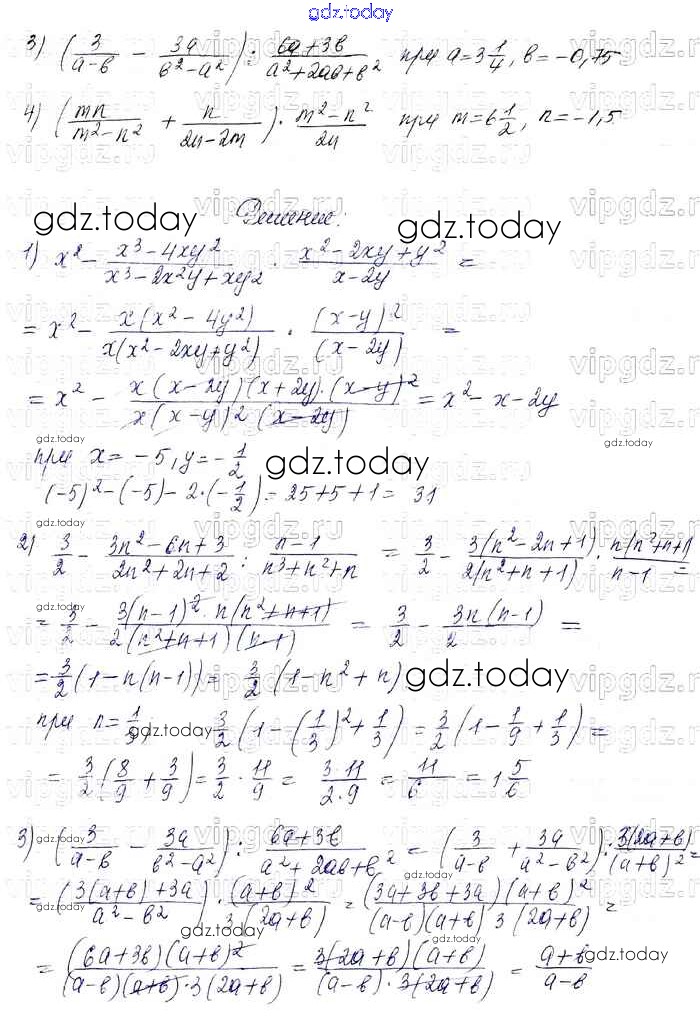 gdz.today
3) (3/(a-b) - 3a/(b²-a²)) : (6a+3b)/(a²+2ab+b²) при a=3 1/4, b=-0,75
4) (mn/(m²-n²) + n/(2n-2m)) · (m²-n²)/2n при m=6 1/2, n=-1,5
Решение:
gdz.today gdz.today
1) x² - (x³-4xy²)/(x³-2x²y+xy²) · (x²-2xy+y²)/(x-2y) =
= x² - x(x²-4y²)/(x(x²-2xy+y²)) · (x-y)²/(x-2y) =
= x² - x(x-2y)(x+2y)·(x-y)²/(x(x-y)²(x-2y)) = x²-x-2y
gdz.today
при x=-5, y=-1/2 gdz.today
(-5)²-(-5)-2·(-1/2)=25+5+1=31
gdz.today
2) 3/2 - (3n²-6n+3)/(2n²+2n+2) : (n-1)/(n³+n²+n) = 3/2 - 3(n²-2n+1)/(2(n²+n+1)) · n(n²+n+1)/(n-1) =
gdz.today
= 3/2 - 3(n-1)²·n(n²+n+1)/(2(n²+n+1)(n-1)) = 3/2 - 3n(n-1)/2 =
= 3/2(1-n(n-1)) = 3/2(1-n²+n) gdz.today
gdz.today
при n=1/3, 3/2(1-(1/3)²+1/3) = 3/2(1-1/9+1/3) =
= 3/2(8/9+3/9) = 3/2 · 11/9 = 3·11/2·9 = 11/6 = 1 5/6
gdz.today
3) (3/(a-b) - 3a/(b²-a²)) : (6a+3b)/(a²+2ab+b²) = (3/(a-b) + 3a/(a²-b²)) : 3(2a+b)/(a+b)² =
gdz.today
= (3(a+b)+3a)/(a²-b²) · (a+b)²/(3(2a+b)) = (3a+3b+3a)(a+b)²/((a-b)(a+b)3(2a+b)) =
gdz.today
= (6a+3b)(a+b)²/((a-b)(a+b)·3(2a+b)) = 3(2a+b)(a+b)/((a-b)·3(2a+b)) = (a+b)/(a-b)
gdz.today